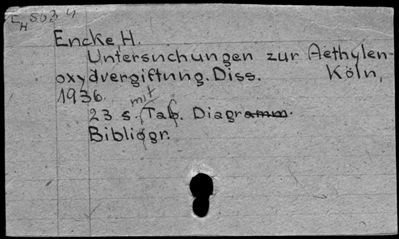 Encke H.
Untersuchungen zur Aethylen-
oxydvergiftung. Diss. Köln,
1936.
mit
23 s. Tab. Diagramm.
Bibliogr.